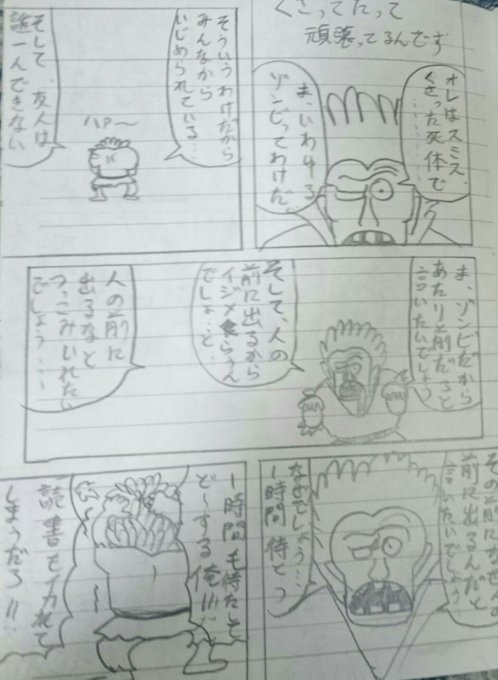 くさってたって
頑張ってるんです
オレはスミス、
くさった死体で
ま、いわゆる
ゾンビってわけだ。
そういうわけだから
みんなから
いじめられている…
ハァ〜
そして、友人は
誰一人できない
ま、ゾンビだから
あたり前だろと
言いたいでしょう
そして、人の
前に出るから
イジメ食らうん
でしょ、と、
人の前に
出るなと
つっこみいれたい
でしょう……
前に出るんだと
言いたいでしょう
なぜでしょう…
1時間待とう
1時間も待たして
ど〜する俺!!!
読書もイカれて
しまうだろ!!